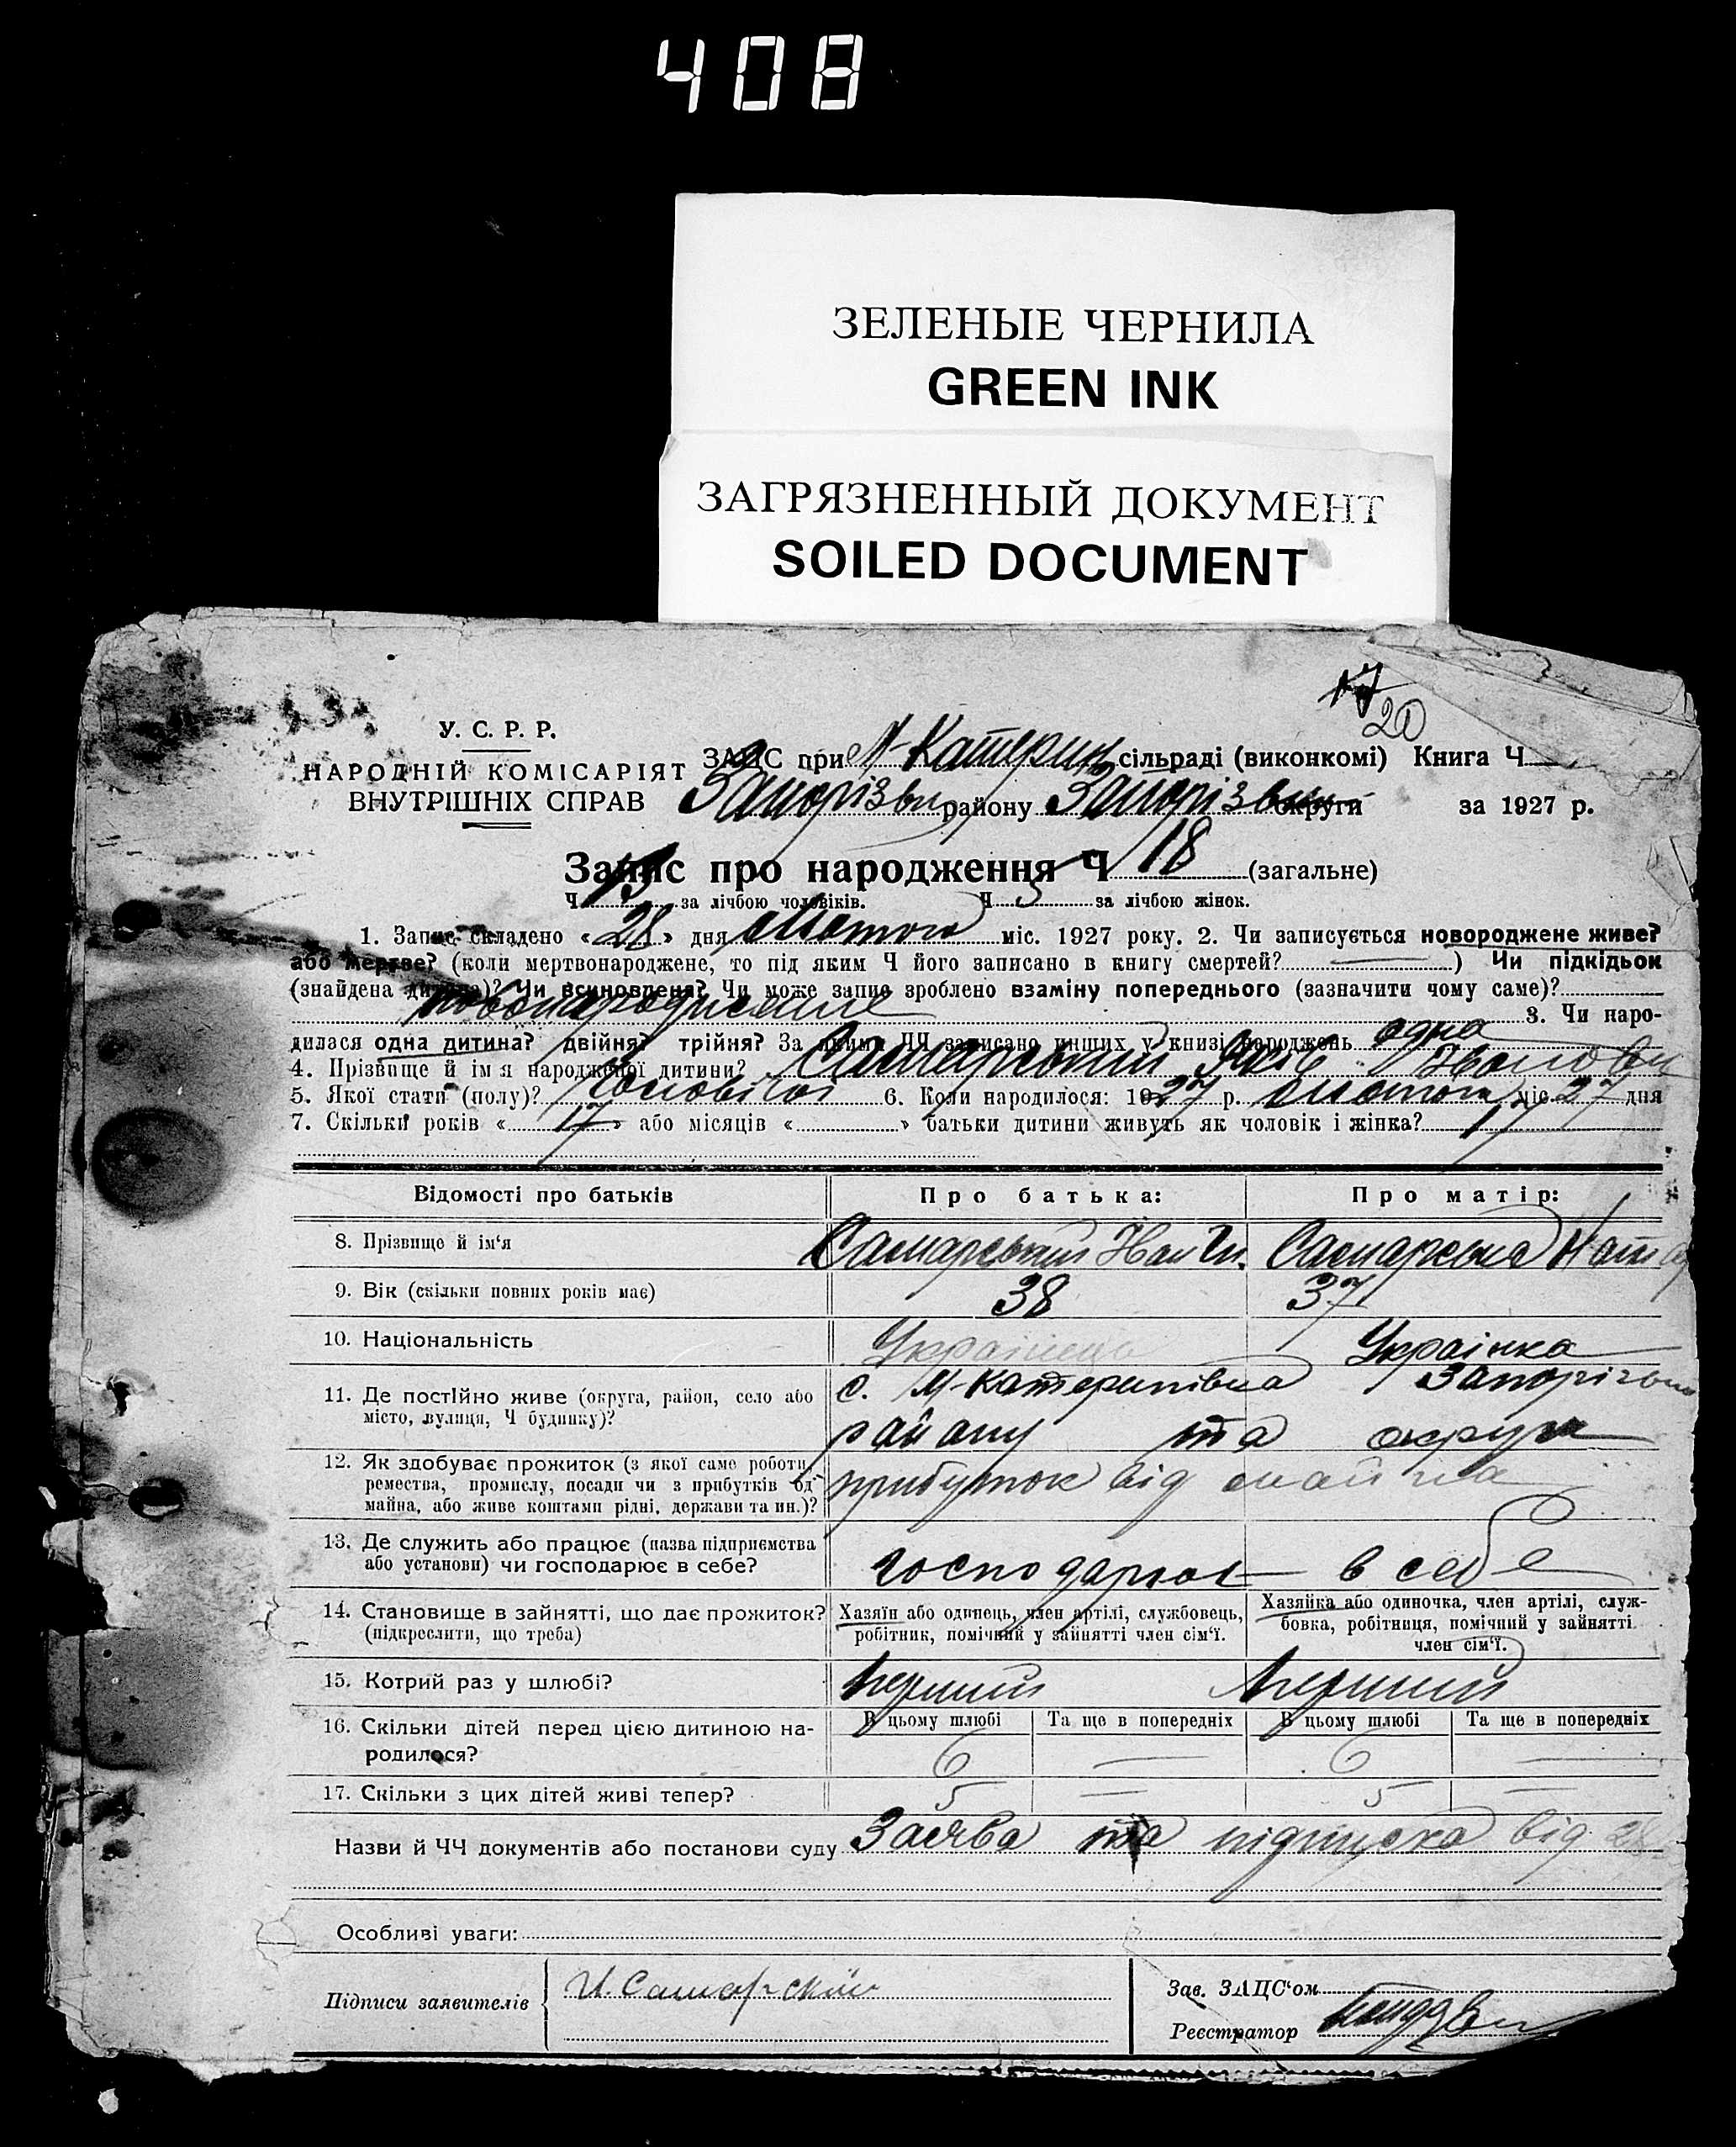 408
ЗЕЛЕНЫЕ ЧЕРНИЛА
GREEN INK
ЗАГРЯЗНЕННЫЙ ДОКУМЕНТ
SOILED DOCUMENT
17
20
У. С. Р. Р.
НАРОДНІЙ КОМІСАРІЯТ
ВНУТРІШНІХ СПРАВ
ЗАГС при М-Катерин сільраді (виконкомі) Книга Ч
Запорізьк району Запорізьк округи за 1927 р.
Запис про народження Ч 18 (загальне)
Ч 13 за лічбою чоловіків. Ч 5 за лічбою жінок.
1. Запис складено «28» дня Лютого міс. 1927 року. 2. Чи записується новороджене живе?
або мертве? (коли мертвонароджене, то під яким Ч його записано в книгу смертей? —) Чи підкідьок
(знайдена дитина)? Чи всиновлена? Чи може запис зроблено взаміну попереднього (зазначити чому саме)?
новонароджене 3. Чи наро-
дилася одна дитина? двійня? трійня? За якими ЧЧ записано инших у книзі народжень одна
4. Прізвище й ім'я народженої дитини? Самарський Яків Іванов
5. Якої стати (полу)? Чоловічої 6. Коли народилося: 1927 р. Лютого міс. 27 дня
7. Скільки років «17» або місяців « » батьки дитини живуть як чоловік і жінка? 17
Відомості про батьків Про батька: Про матір:
8. Прізвище й ім'я Самарський Іван Самарська
9. Вік (скільки повних років має) 38 37
10. Національність Українець Українка
11. Де постійно живе (округа, район, село або с. М-Катеринівка Запорізьк
місто, вулиця, Ч будинку)? району та округи
12. Як здобуває прожиток (з якої саме роботи,
ремества, промислу, посади чи з прибутків од прибуток від майна
майна, або живе коштами рідні, держави та ин.)?
13. Де служить або працює (назва підприємства
або установи) чи господарює в себе? господарює в себе
14. Становище в зайнятті, що дає прожиток? Хазяїн або одинець, член артілі, службовець, Хазяйка або одиночка, член артілі, служ-
(підкреслити, що треба) робітник, помічний у зайнятті член сім'ї. бовка, робітниця, помічний у зайнятті
член сім'ї.
15. Котрий раз у шлюбі? перший перший
16. Скільки дітей перед цією дитиною на- В цьому шлюбі Та ще в попередніх В цьому шлюбі Та ще в попередніх
родилося? 6 — 6 —
17. Скільки з цих дітей живі тепер? 5 — 5 —
Назви й ЧЧ документів або постанови суду Заява та підписка від 28
Особливі уваги:
Підписи заявителів И. Самарский
Зав. ЗАЦС'ом
Реєстратор